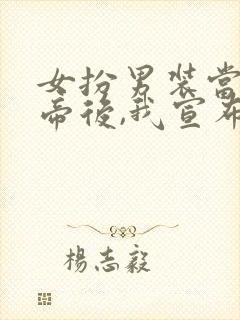 女扮男装當
帝後,我宣布
楊志毅